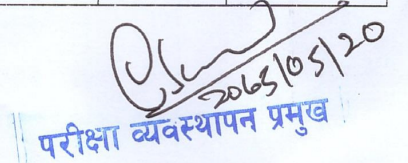 2065/05/20
परीक्षा व्यवस्थापन प्रमुख